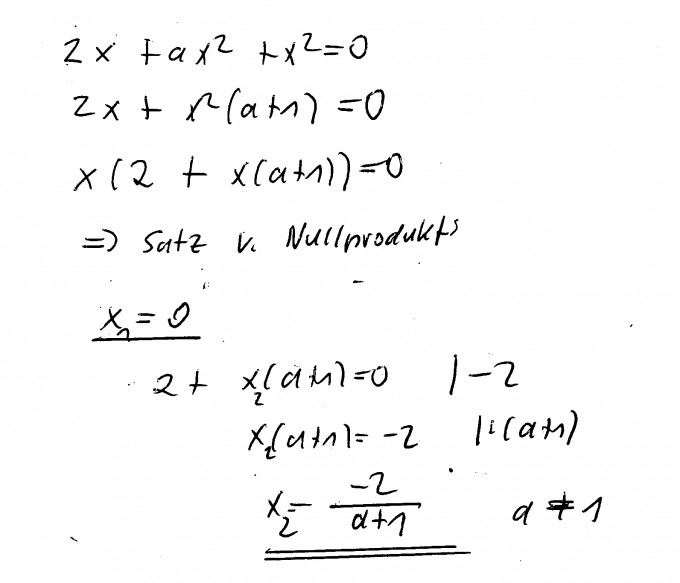 2x + ax² + x² = 0
2x + x²(a+1) = 0
x(2 + x(a+1)) = 0
=> Satz v. Nullprodukts
x₁ = 0
2 + x₂(a+1) = 0 | -2
x₂(a+1) = -2 | :(a+1)
x₂ = -2/(a+1) a ≠ 1